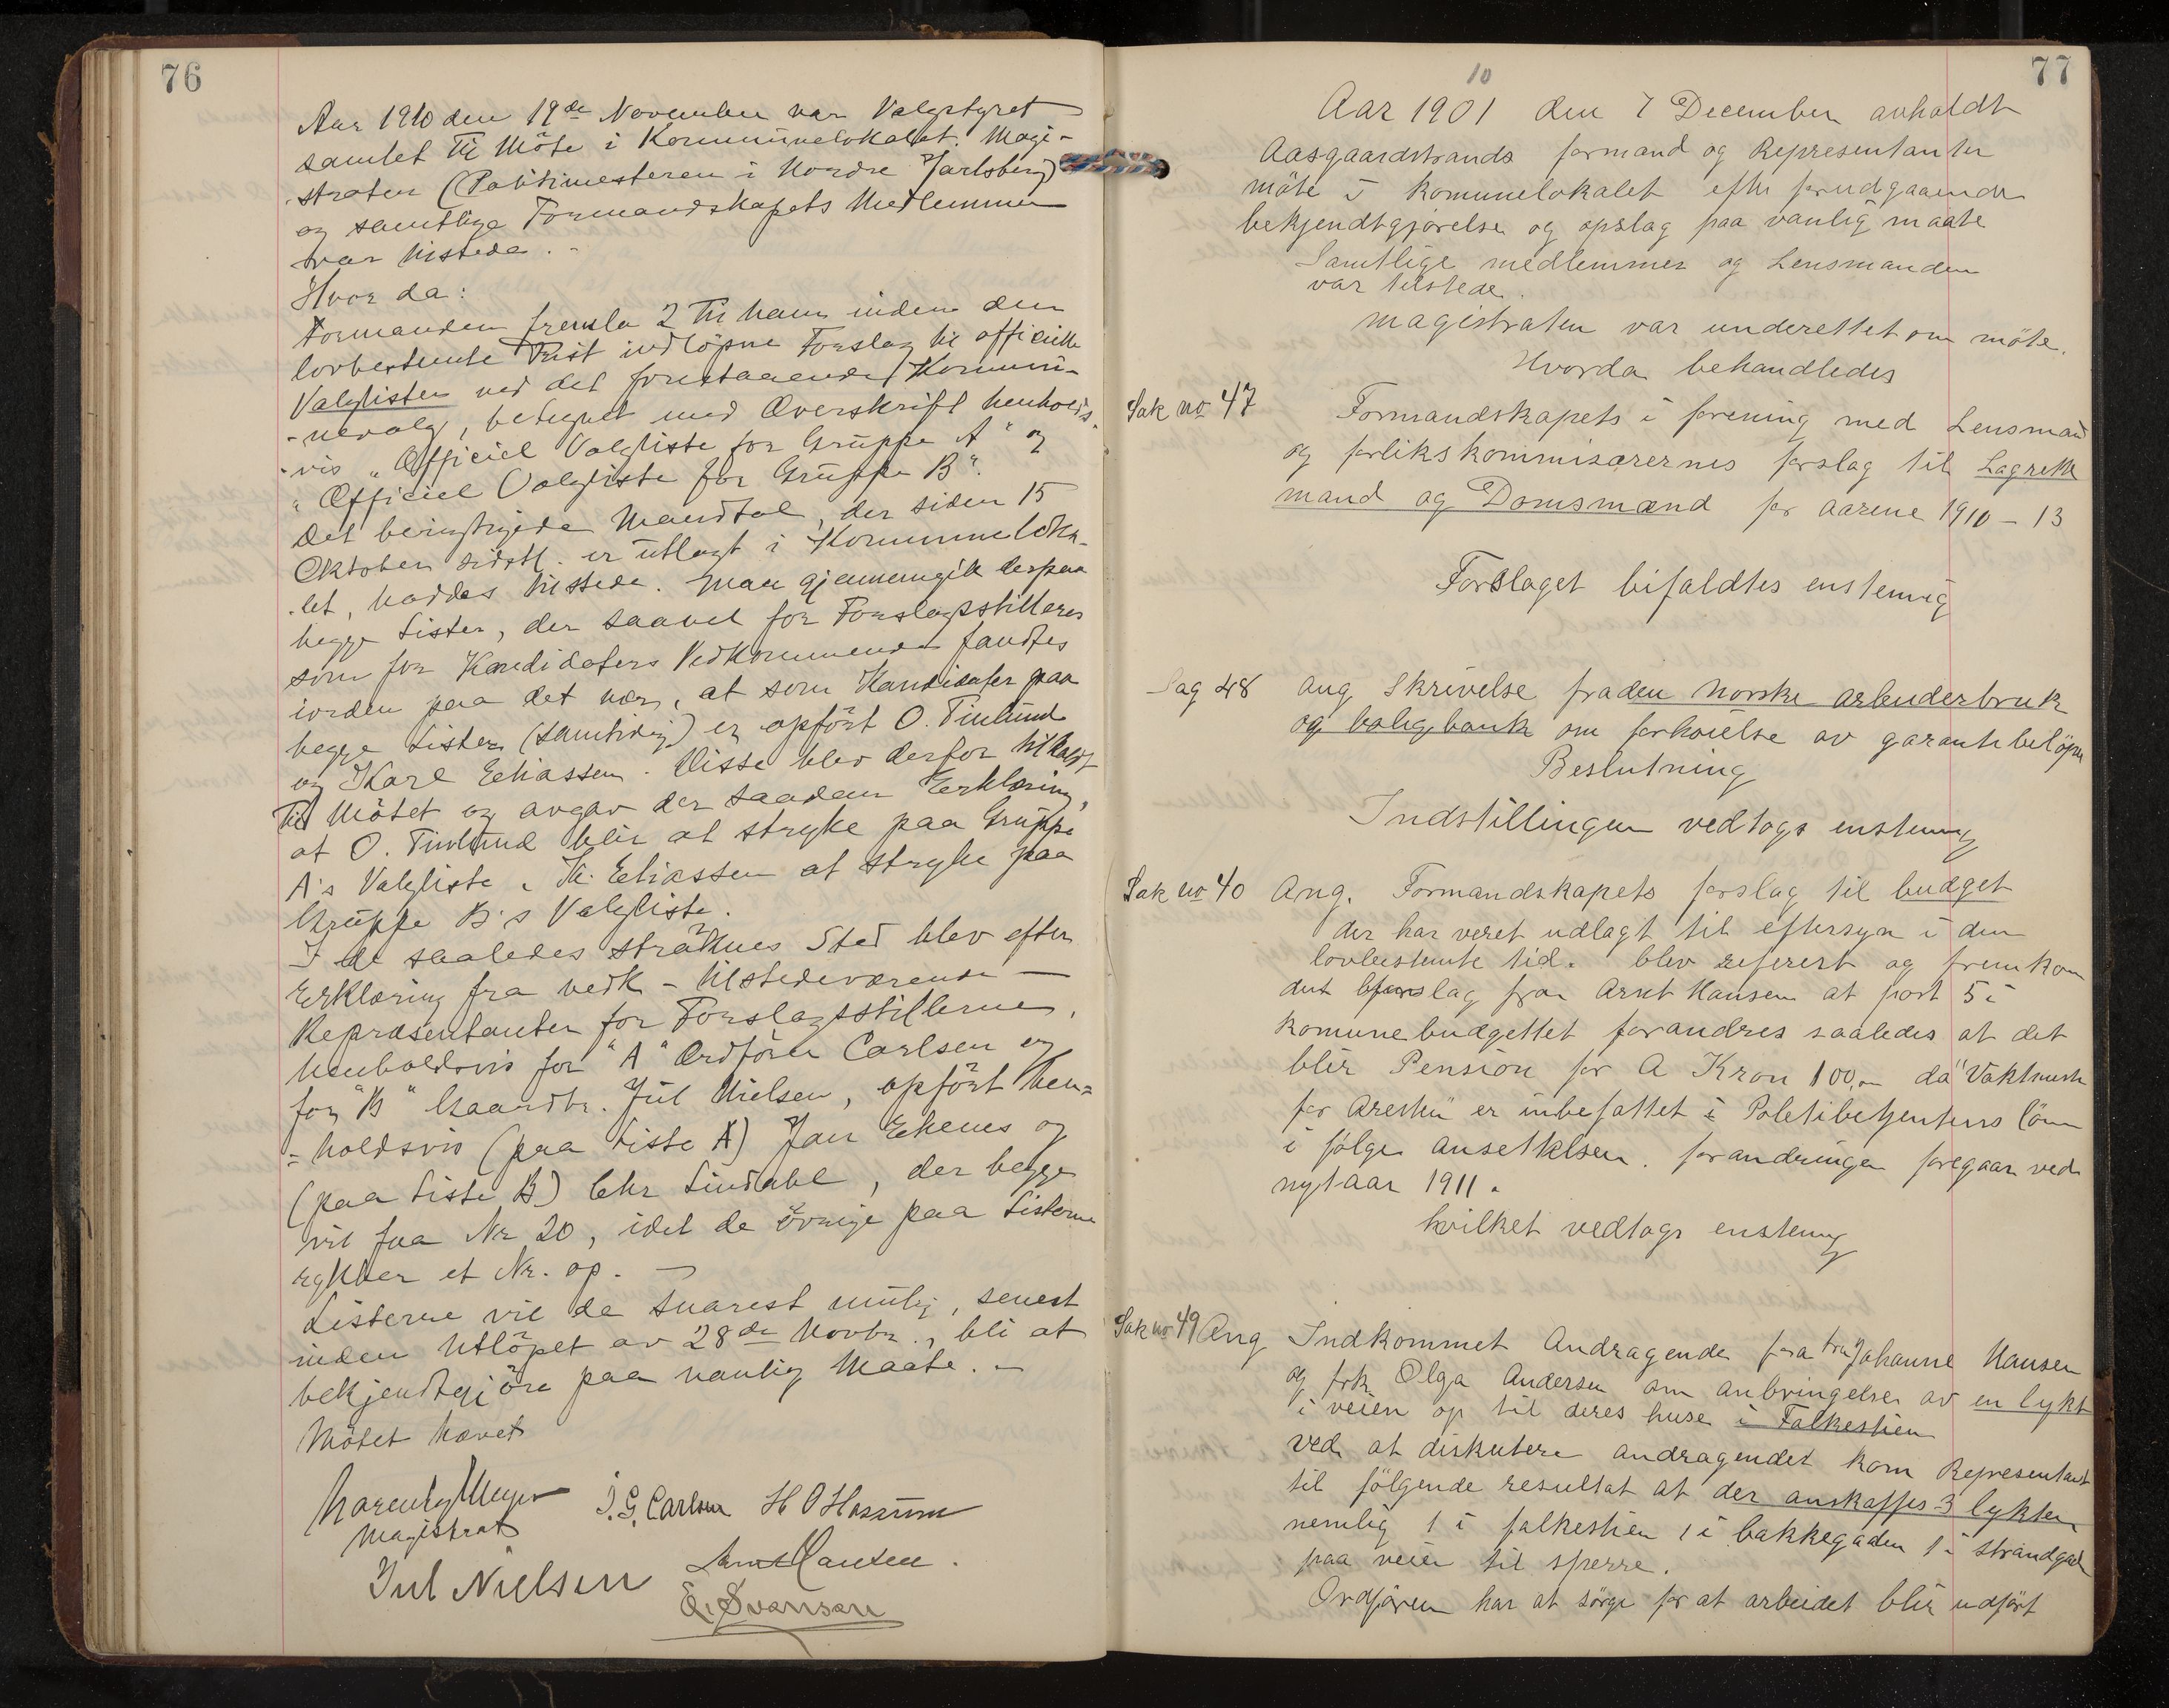 76
Aar 1910 den 19de November var Valgstyret
samlet til Möte i Kommünelokalet. Magi-
straten (Politimesteren i Nordre Jarlsberg)
og samtlige Formandskapets Medlemmer
var tilstede. -
Hvor da:
Formanden fremla 2 til ham inden den
lovbestemte Frist indlöpne Forslag til officielle
Valglister ved det forestaaende Kommü-
-nevalg, betegnet med Overskrift henholds-
-vis "Officiel Valgliste for Grüppe A" og
"Officiel Valgliste for Grüppe B".
Det berigtigede Mandtal, der siden 15
Oktober sidstl. er ütlagt i Kommuneloka-
-let, haddes tilstede. Man gjennemgik derpaa
begge Lister, der saavel for Forslagsstilleres
som for Kandidaters Vedkommende fandtes
iorden paa det nær, at som Kandidater paa
begge Lister (samtidig) er opfört O. Finlund
og Karl Eliassen. Disse blev derfor tilkaldt
til Mötet og avgav der saadan Erklæring,
at O. Finlund blir at stryke paa Grüppe
A's Valgliste, K. Eliassen at stryke paa
Grüppe B's Valgliste.
I de saaledes sträknes Sted blev efter
Erklæring fra vedk - tilstedeværende -
Repræsentanter for Forslagsstillerne,
henholdsvis for "A" Ordförer Carlsen og
for "B" Gaardbr. Jül Nielsen, opfört hen=
=holdsvis (paa Liste A) Jan Ekenes og
(paa Liste B) Chr Lindahl, der begge
vil faa Nr 20, idet de övrige paa Listerne
rykker et Nr. op. -
Listerne vil de snarest mülig, senest
inden Utlöpet av 28de Novbr., bli at
bekjendtgjöre paa vanlig Maate. -
Mötet hævet
Meyer
magistrat
J. G. Carlsen H O Hassum
Jul Nielsen Arnt Hansen.
E. Svensen
77
10
Aar 1901 den 7 December avholdt
Aasgaardstrands formand og Representanter
möte i Kommunelokalet efter forudgaaende
bekjendtgjörelse og opslag paa vanlig maate
Samtlige medlemmer og Lensmanden
var tilstede.
magistraten var underettet om möte.
Hvorda behandledes
Sak no 47 Formandskapets i forening med Lensmand
og forlikskommisærernes forslag til Lagrette
mand og Domsmænd for aarene 1910 - 13
Forslaget bifaldtes enstemig
Sag 48 ang Skrivelse fra den Norske arbeiderbruk
og boligbank om forhöielse av garantibelöpet
Beslutning
Indstillingen vedtogs enstemig
Sak no 40 Ang. Formandskapets forslag til budget
der har veret udlagt til eftersyn i den
lovbestemte tid. blev referert og fremkom
det forslag fra Arnt Hansen at post 5 i
Komunebudgettet forandres saaledes at det
blir Pension for A Kron 100,- da "Vaktmester
for Aresten" er inbefattet i Politibetjentens lönn
i følge ansettelsen. forandringen foregaar ved
nytaar 1911.
hvilket vedtogs enstemig
Sak no 49 Ang Indkommet Andragende fra fru Johanne Hansen
og frk Olga Andersen om anbringelse av en lykt
i veien op til deres huse i Falkestien
ved at diskutere andragendet kom Representant
til fölgende resultat at der anskaffes 3 lykter,
nemlig 1 i falkestien 1 i bakkegaden 1 i strandgad
paa veien til sperre.
Ordføren har at sörge for at arbeidet blir udført